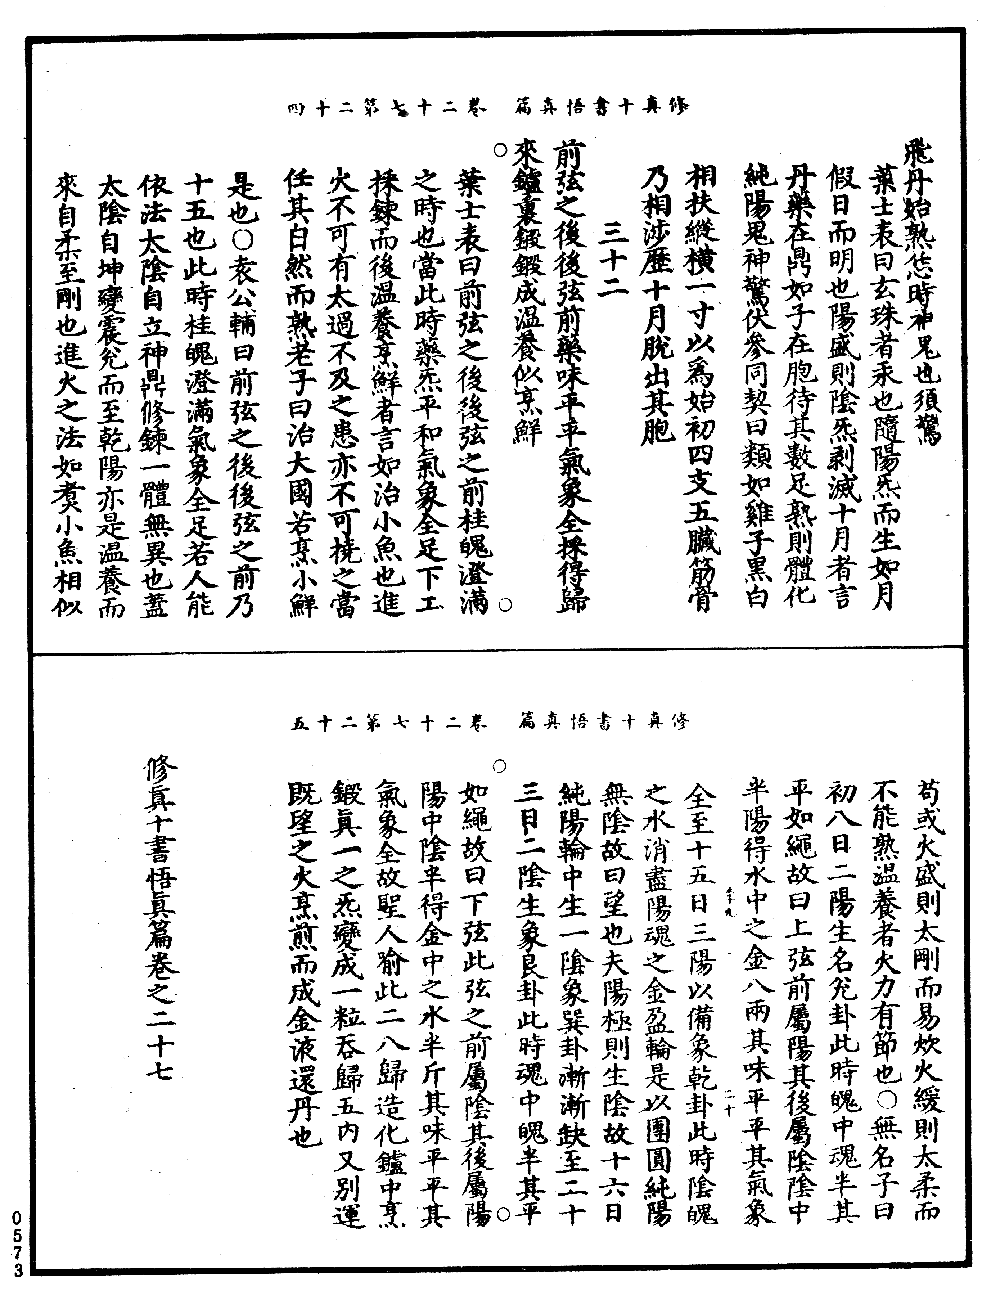 修真十書悟真篇　卷二十七第二十四
飛丹始熟恁時神鬼也須驚
葉士表曰玄珠者汞也隨陽炁而生如月
假日而明也陽盛則陰炁剥滅十月者言
丹藥在鼎如子在胞待其數足熟則體化
純陽鬼神驚伏參同契曰類如雞子黑白
相扶縱橫一寸以為始初四支五臟筋骨
乃相涉歷十月脫出其胞
三十二
前弦之後後弦前藥味平平氣象全採得歸
來鑪裏鍛鍛成温養似烹鮮
葉士表曰前弦之後後弦之前桂魄澄滿
之時也當此時藥炁平和氣象全足下工
採鍊而後温養烹鮮者言如治小魚也進
火不可有太過不及之患亦不可撓之當
任其自然而熟老子曰治大國若烹小鮮
是也○袁公輔曰前弦之後後弦之前乃
十五也此時桂魄澄滿氣象全足若人能
依法太陰自立神鼎修鍊一體無異也蓋
太陰自坤變震兌而至乾陽亦是温養而
來自柔至剛也進火之法如煑小魚相似
修真十書悟真篇　卷二十七第二十五
苟或火盛則太剛而易炊火緩則太柔而
不能熟温養者火力有節也○無名子曰
初八日二陽生名兌卦此時魄中魂半其
平如繩故曰上弦前屬陽其後屬陰陰中
半陽得水中之金八兩其味平平其氣象
全至十五日三陽以備象乾卦此時陰魄
之水消盡陽魂之金盈輪是以團圓純陽
無陰故曰望也夫陽極則生陰故十六日
純陽輪中生一陰象巽卦漸漸缺至二十
三日二陰生象艮卦此時魂中魄半其平
如繩故曰下弦此弦之前屬陰其後屬陽
陽中陰半得金中之水半斤其味平平其
氣象全故聖人喻此二八歸造化鑪中烹
鍛真一之炁變成一粒吞歸五内又別運
既望之火烹煎而成金液還丹也
修真十書悟真篇卷之二十七
0573